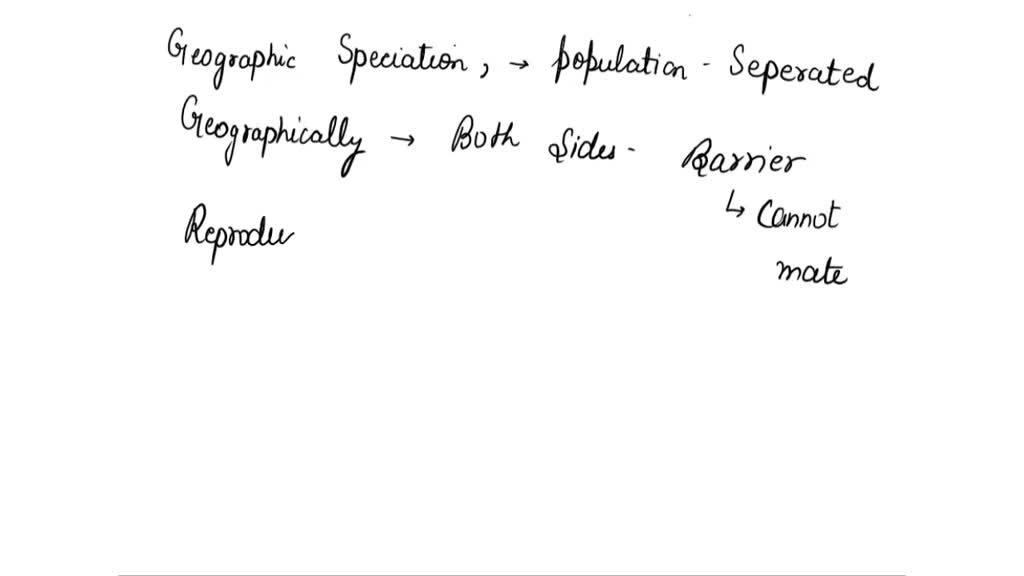 Geographic Speciation, → population - Seperated
Geographically → Both Sides - Barrier
↳ Cannot
mate
Reprodu